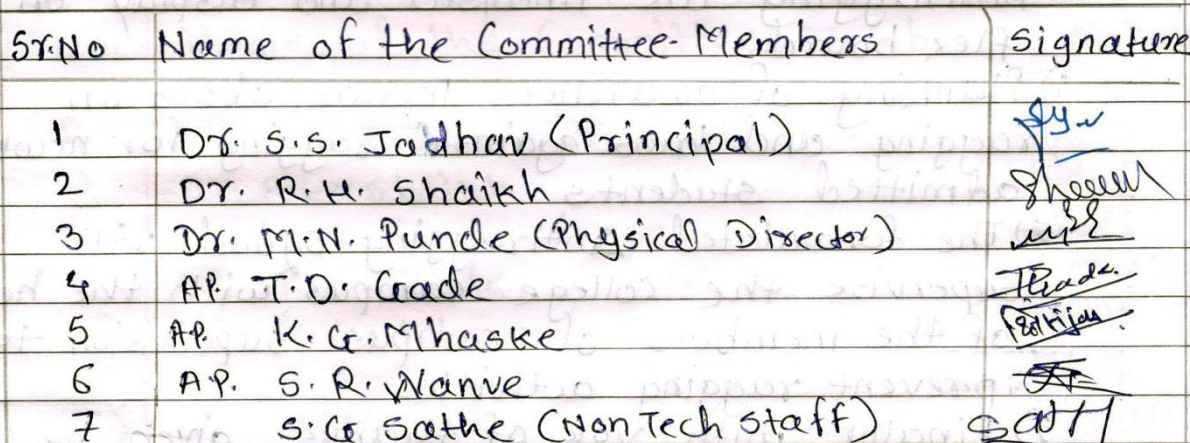 Sr.No Name of the Committee-Members Signature
1 Dr. S.S. Jadhav (Principal)
2 Dr. R.H. Shaikh
3 Dr. M.N. Punde (Physical Director)
4 AP. T.D. Gade
5 AP. K.G. Mhaske
6 A.P. S.R. Wanve
7 S.G. Sathe (Non Tech Staff)